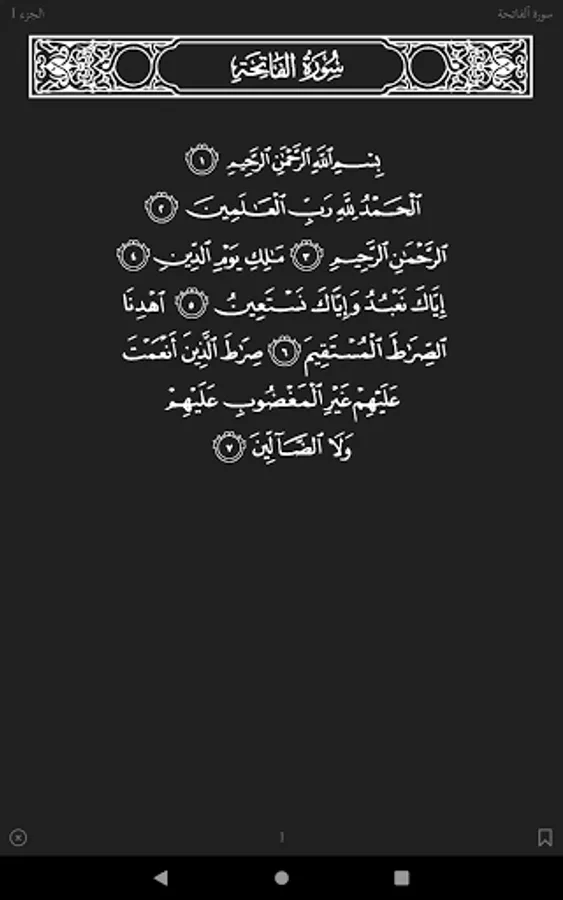 سورة الفاتحة الجزء 1
سُورَةُ الفَاتِحَةِ
بِسْمِ ٱللَّهِ ٱلرَّحْمَٰنِ ٱلرَّحِيمِ ١
ٱلْحَمْدُ لِلَّهِ رَبِّ ٱلْعَٰلَمِينَ ٢
ٱلرَّحْمَٰنِ ٱلرَّحِيمِ ٣ مَٰلِكِ يَوْمِ ٱلدِّينِ ٤
إِيَّاكَ نَعْبُدُ وَإِيَّاكَ نَسْتَعِينُ ٥ ٱهْدِنَا
ٱلصِّرَٰطَ ٱلْمُسْتَقِيمَ ٦ صِرَٰطَ ٱلَّذِينَ أَنْعَمْتَ
عَلَيْهِمْ غَيْرِ ٱلْمَغْضُوبِ عَلَيْهِمْ
وَلَا ٱلضَّآلِّينَ ٧
1